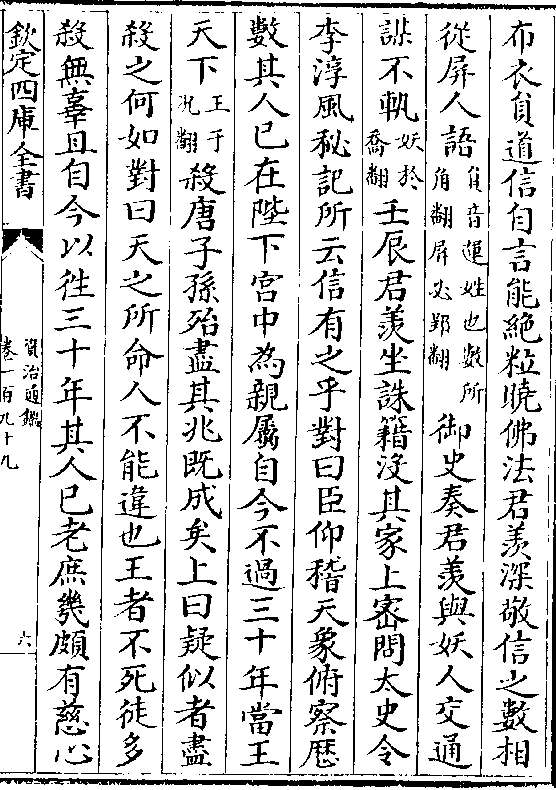 布衣員道信自言能絶粒曉佛法君羨深敬信之數相
從屏人語員音運姓也數所角翻屏必郢翻御史奏君羨與妖人交通
謀不軌妖於喬翻壬辰君羨坐誅籍沒其家上密問太史令
李淳風秘記所云信有之乎對曰臣仰稽天象俯察厯
數其人已在陛下宮中為親屬自今不過三十年當王
天下王于况翻殺唐子孫殆盡其兆既成矣上曰疑似者盡
殺之何如對曰天之所命人不能違也王者不死徒多
殺無辜且自今以往三十年其人已老庶幾頗有慈心
欽定四庫全書
資治通鑑
卷一百九十九
六